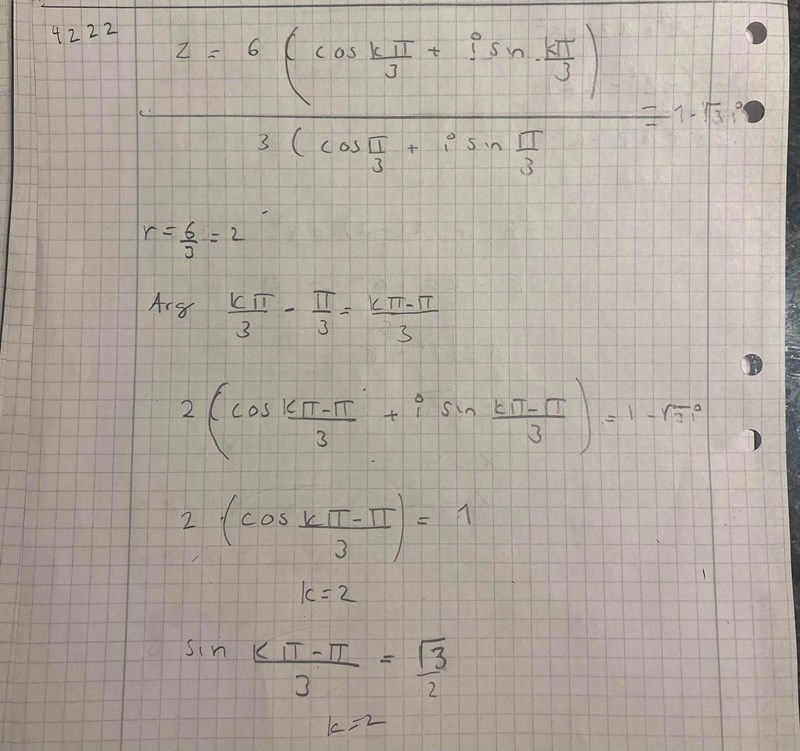 4222
z = 6 (cos kπ/3 + i sin kπ/3)
= 1-√3 i
3 (cos π/3 + i sin π/3
r = 6/3 = 2
Arg kπ/3 - π/3 = kπ-π/3
2 (cos kπ-π/3 + i sin kπ-π/3) = 1 - √3 i
2 (cos kπ-π/3) = 1
k=2
sin kπ-π/3 = √3/2
k=2